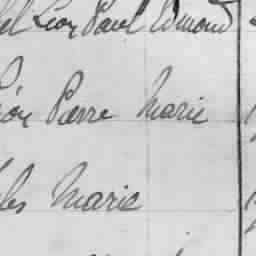 Léon Paul Edmond
Léon Pierre Marie
Marie